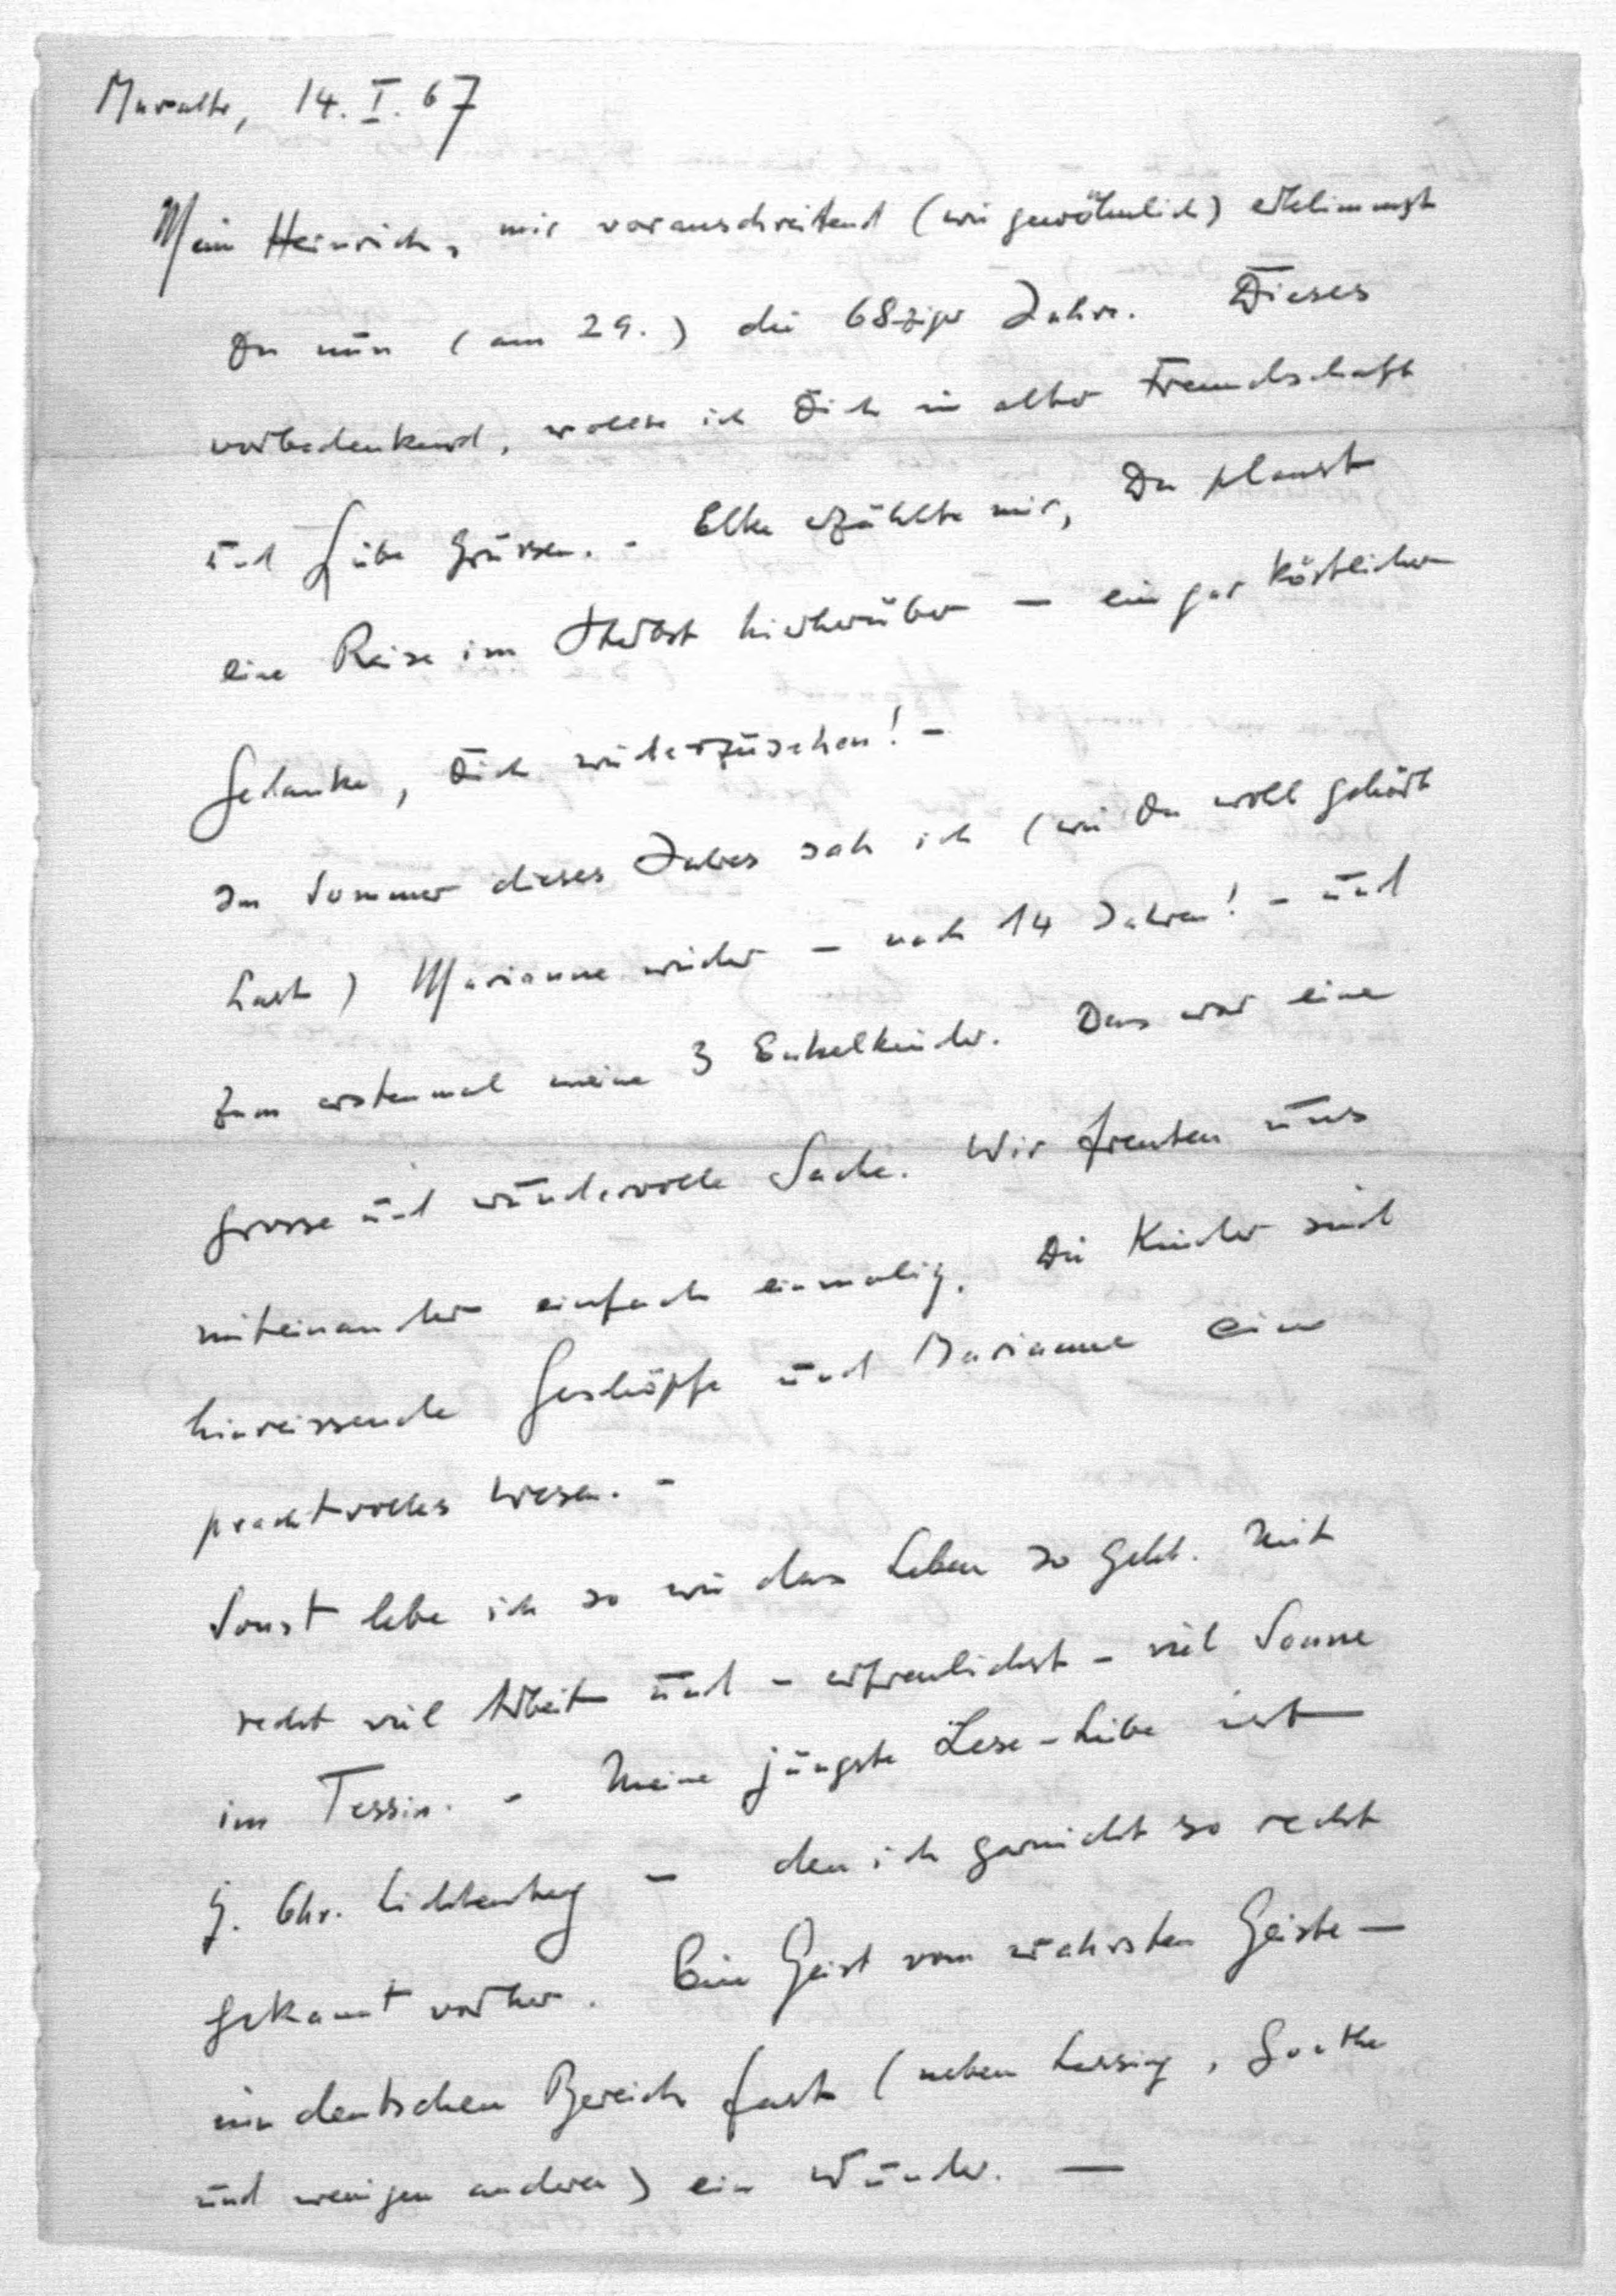 Muralto, 14. I. 67
Mein Heinrich, mir voranschreitend (wie gewöhnlich) erklimmst
Du nun (am 29.) die 68ziger Jahre. Dieses
vorbedenkend, wollte ich Dich in alter Freundschaft
und Liebe grüssen. - Elke erzählte mir, Du planst
eine Reise im Herbst hierherüber — ein gar köstlicher
Gedanke, Dich wiederzusehen! -
Im Sommer dieses Jahres sah ich (wie Du wohl gehört
hast) Marianne wieder — nach 14 Jahren! - und
zum erstenmal meine 3 Enkelkinder. Das war eine
grosse und wundervolle Sache. Wir freuten uns
miteinander einfach einmalig. Die Kinder sind
hinreissende Geschöpfe und Marianne ein
prachtvolles Wesen. -
Sonst lebe ich so wie das Leben so geht. Mit
recht viel Arbeit und - erfreulichst - viel Sonne
im Tessin. - Meine jüngste Lese-Liebe ist
G. Chr. Lichtenberg — den ich garnicht so recht
gekannt vorher. Ein Geist vom wahrsten Geiste —
im deutschen Bereich fast (neben Lessing, Goethe
und wenigen anderen) ein Wunder. —